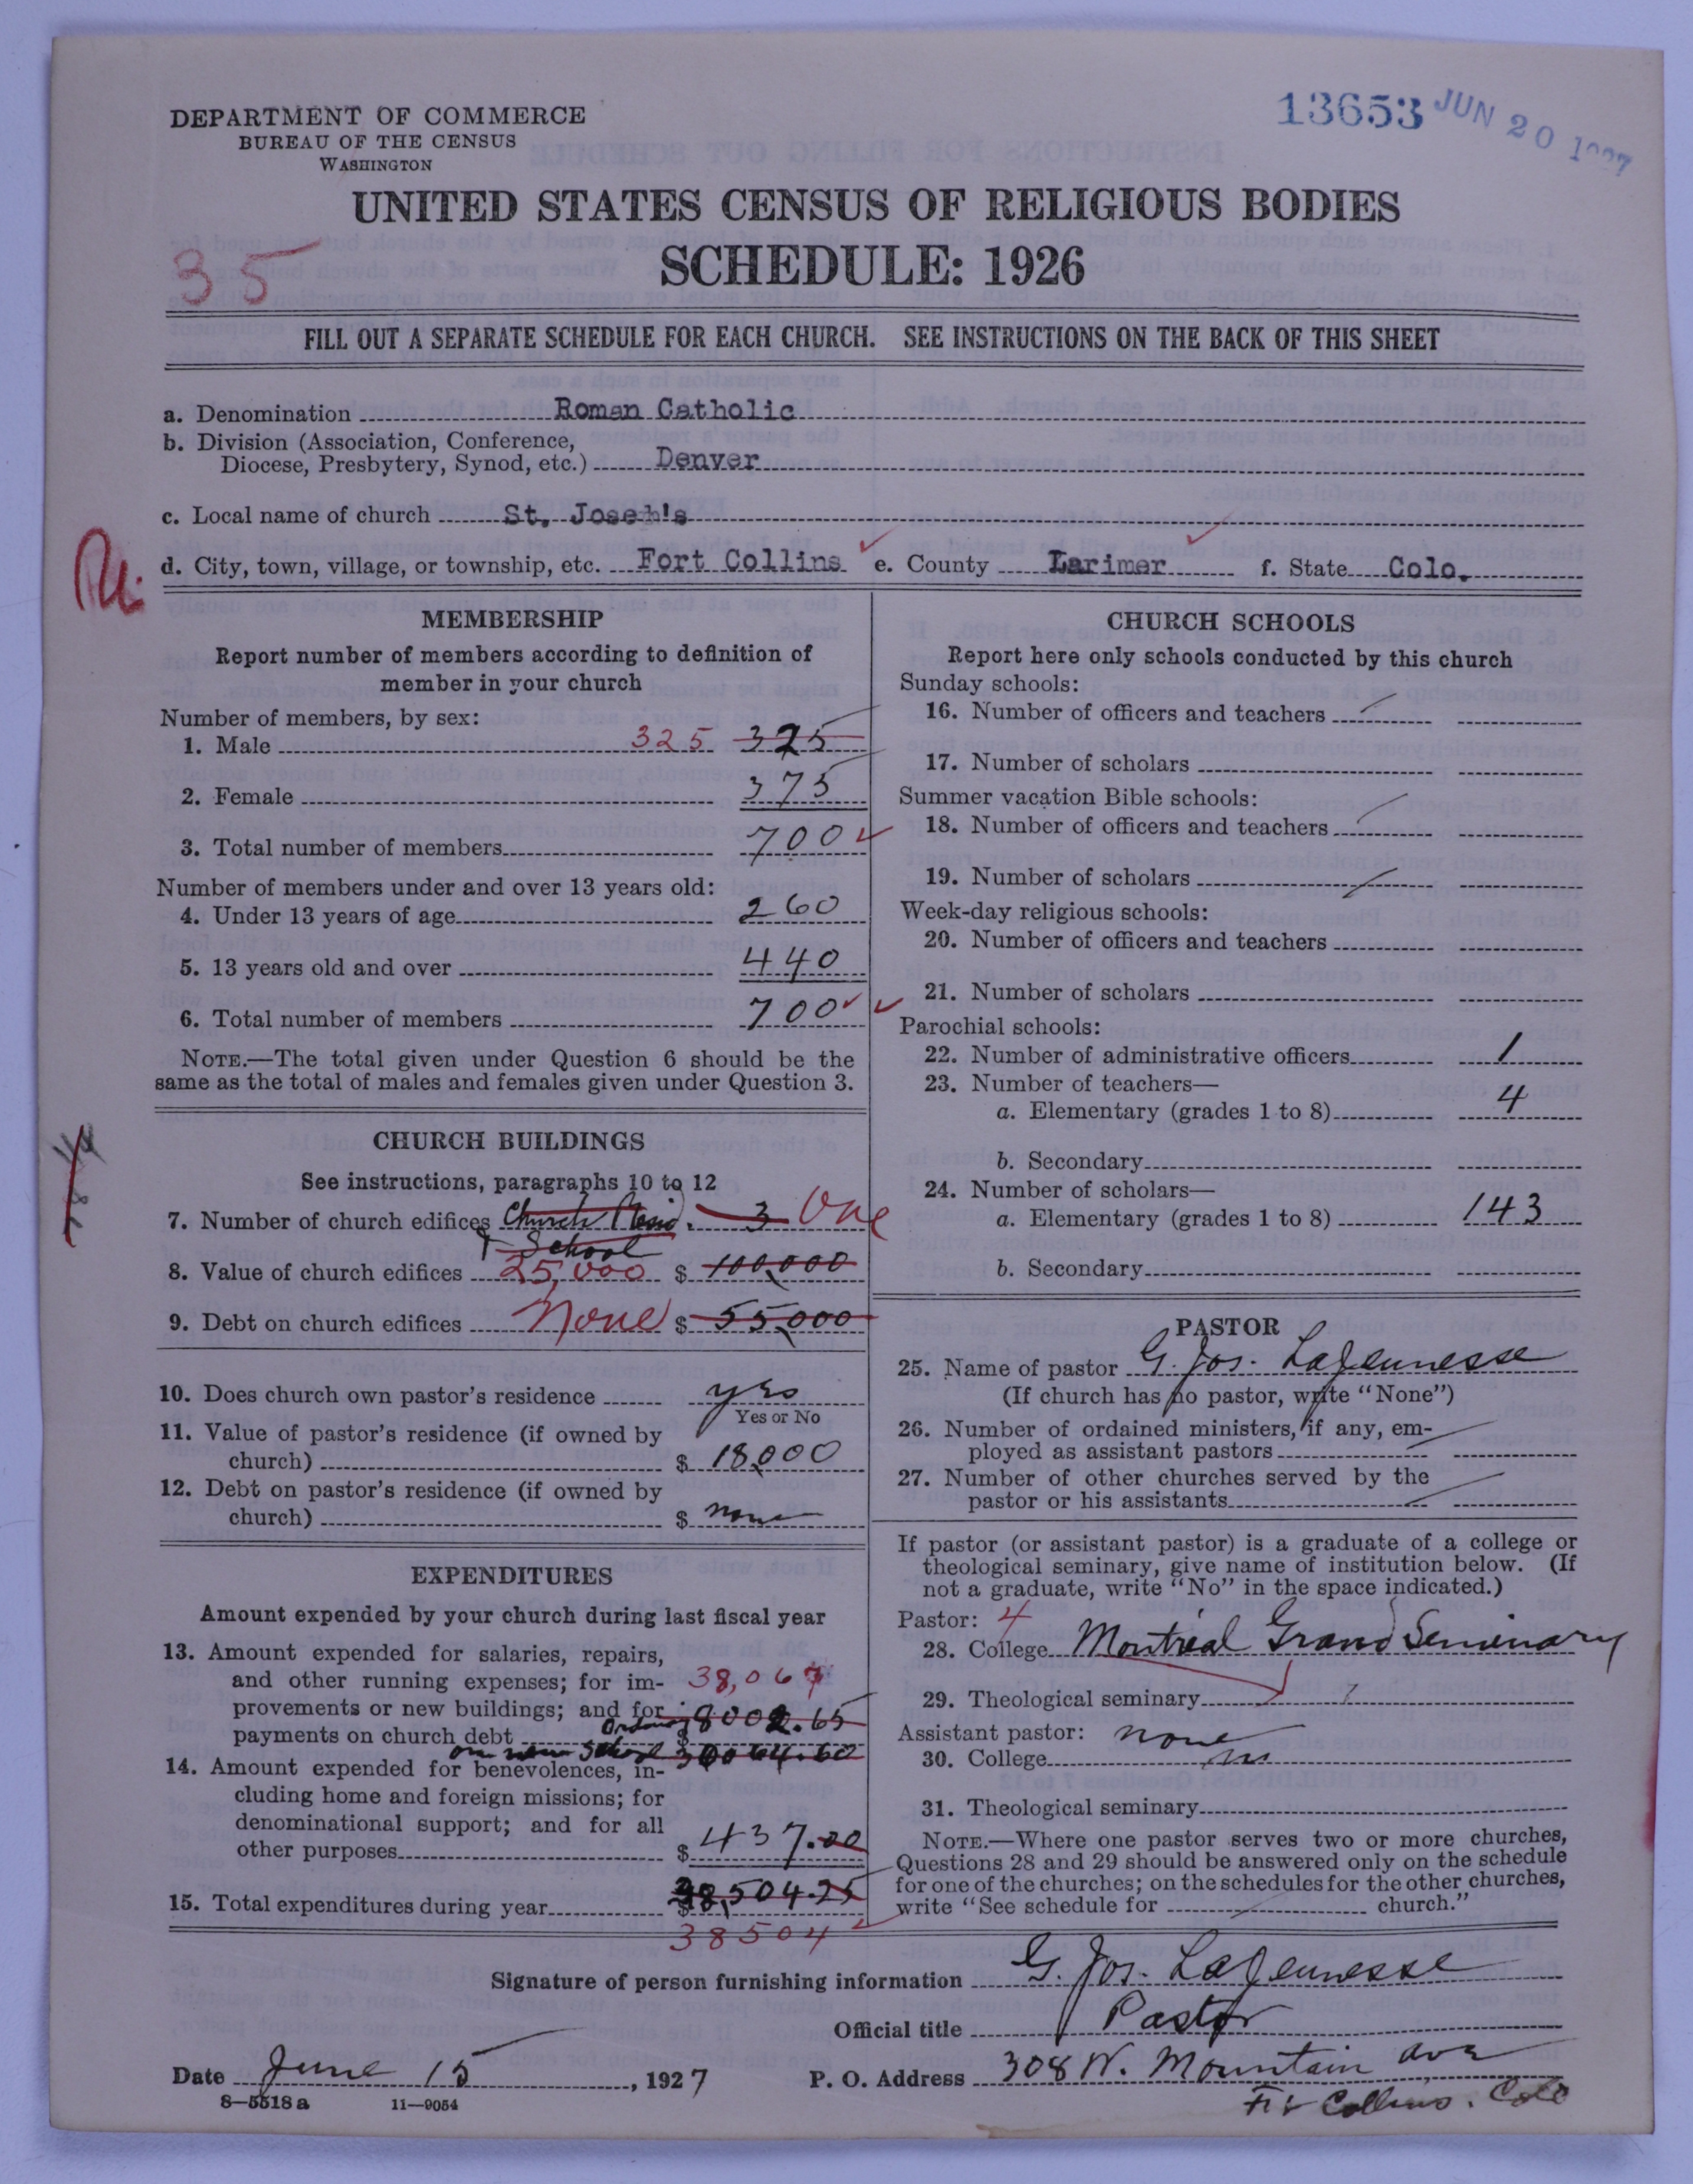 DEPARTMENT OF COMMERCE
BUREAU OF THE CENSUS
WASHINGTON
13653
JUN 20 1927
UNITED STATES CENSUS OF RELIGIOUS BODIES
SCHEDULE: 1926
35
FILL OUT A SEPARATE SCHEDULE FOR EACH CHURCH. SEE INSTRUCTIONS ON THE BACK OF THIS SHEET
a. Denomination Roman Catholic
b. Division (Association, Conference,
Diocese, Presbytery, Synod, etc.) Denver
c. Local name of church St. Joseph's
d. City, town, village, or township, etc. Fort Collins e. County Larimer f. State Colo.
MEMBERSHIP
Report number of members according to definition of
member in your church
Number of members, by sex:
1. Male 325 325
2. Female 375
3. Total number of members 700
Number of members under and over 13 years old:
4. Under 13 years of age 260
5. 13 years old and over 440
6. Total number of members 700
NOTE.—The total given under Question 6 should be the
same as the total of males and females given under Question 3.
CHURCH BUILDINGS
See instructions, paragraphs 10 to 12
7. Number of church edifices Church Resid. 3 One
& School
8. Value of church edifices 25,000 $ 100,000
9. Debt on church edifices None $ 55,000
10. Does church own pastor's residence yes
Yes or No
11. Value of pastor's residence (if owned by
church) $ 18,000
12. Debt on pastor's residence (if owned by
church) $ none
EXPENDITURES
Amount expended by your church during last fiscal year
13. Amount expended for salaries, repairs,
and other running expenses; for im- 38,067
provements or new buildings; and for
payments on church debt Ordinary $ 8002.65
on new School 30064.60
14. Amount expended for benevolences, in-
cluding home and foreign missions; for
denominational support; and for all
other purposes $ 437.00
15. Total expenditures during year $ 38,504.25
38504
CHURCH SCHOOLS
Report here only schools conducted by this church
Sunday schools:
16. Number of officers and teachers
17. Number of scholars
Summer vacation Bible schools:
18. Number of officers and teachers
19. Number of scholars
Week-day religious schools:
20. Number of officers and teachers
21. Number of scholars
Parochial schools:
22. Number of administrative officers 1
23. Number of teachers—
a. Elementary (grades 1 to 8) 4
b. Secondary
24. Number of scholars—
a. Elementary (grades 1 to 8) 143
b. Secondary
PASTOR
25. Name of pastor G. Jos. LaJeunesse
(If church has no pastor, write "None")
26. Number of ordained ministers, if any, em-
ployed as assistant pastors
27. Number of other churches served by the
pastor or his assistants
If pastor (or assistant pastor) is a graduate of a college or
theological seminary, give name of institution below. (If
not a graduate, write "No" in the space indicated.)
Pastor: 4
28. College Montreal Grand Seminary
29. Theological seminary
Assistant pastor: none
30. College
31. Theological seminary
NOTE.—Where one pastor serves two or more churches,
Questions 28 and 29 should be answered only on the schedule
for one of the churches; on the schedules for the other churches,
write "See schedule for church."
Signature of person furnishing information G. Jos. LaJeunesse
Official title Pastor
Date June 15, 1927 P. O. Address 308 W. Mountain Ave
Ft Collins. Colo
8—5518a 11—9054